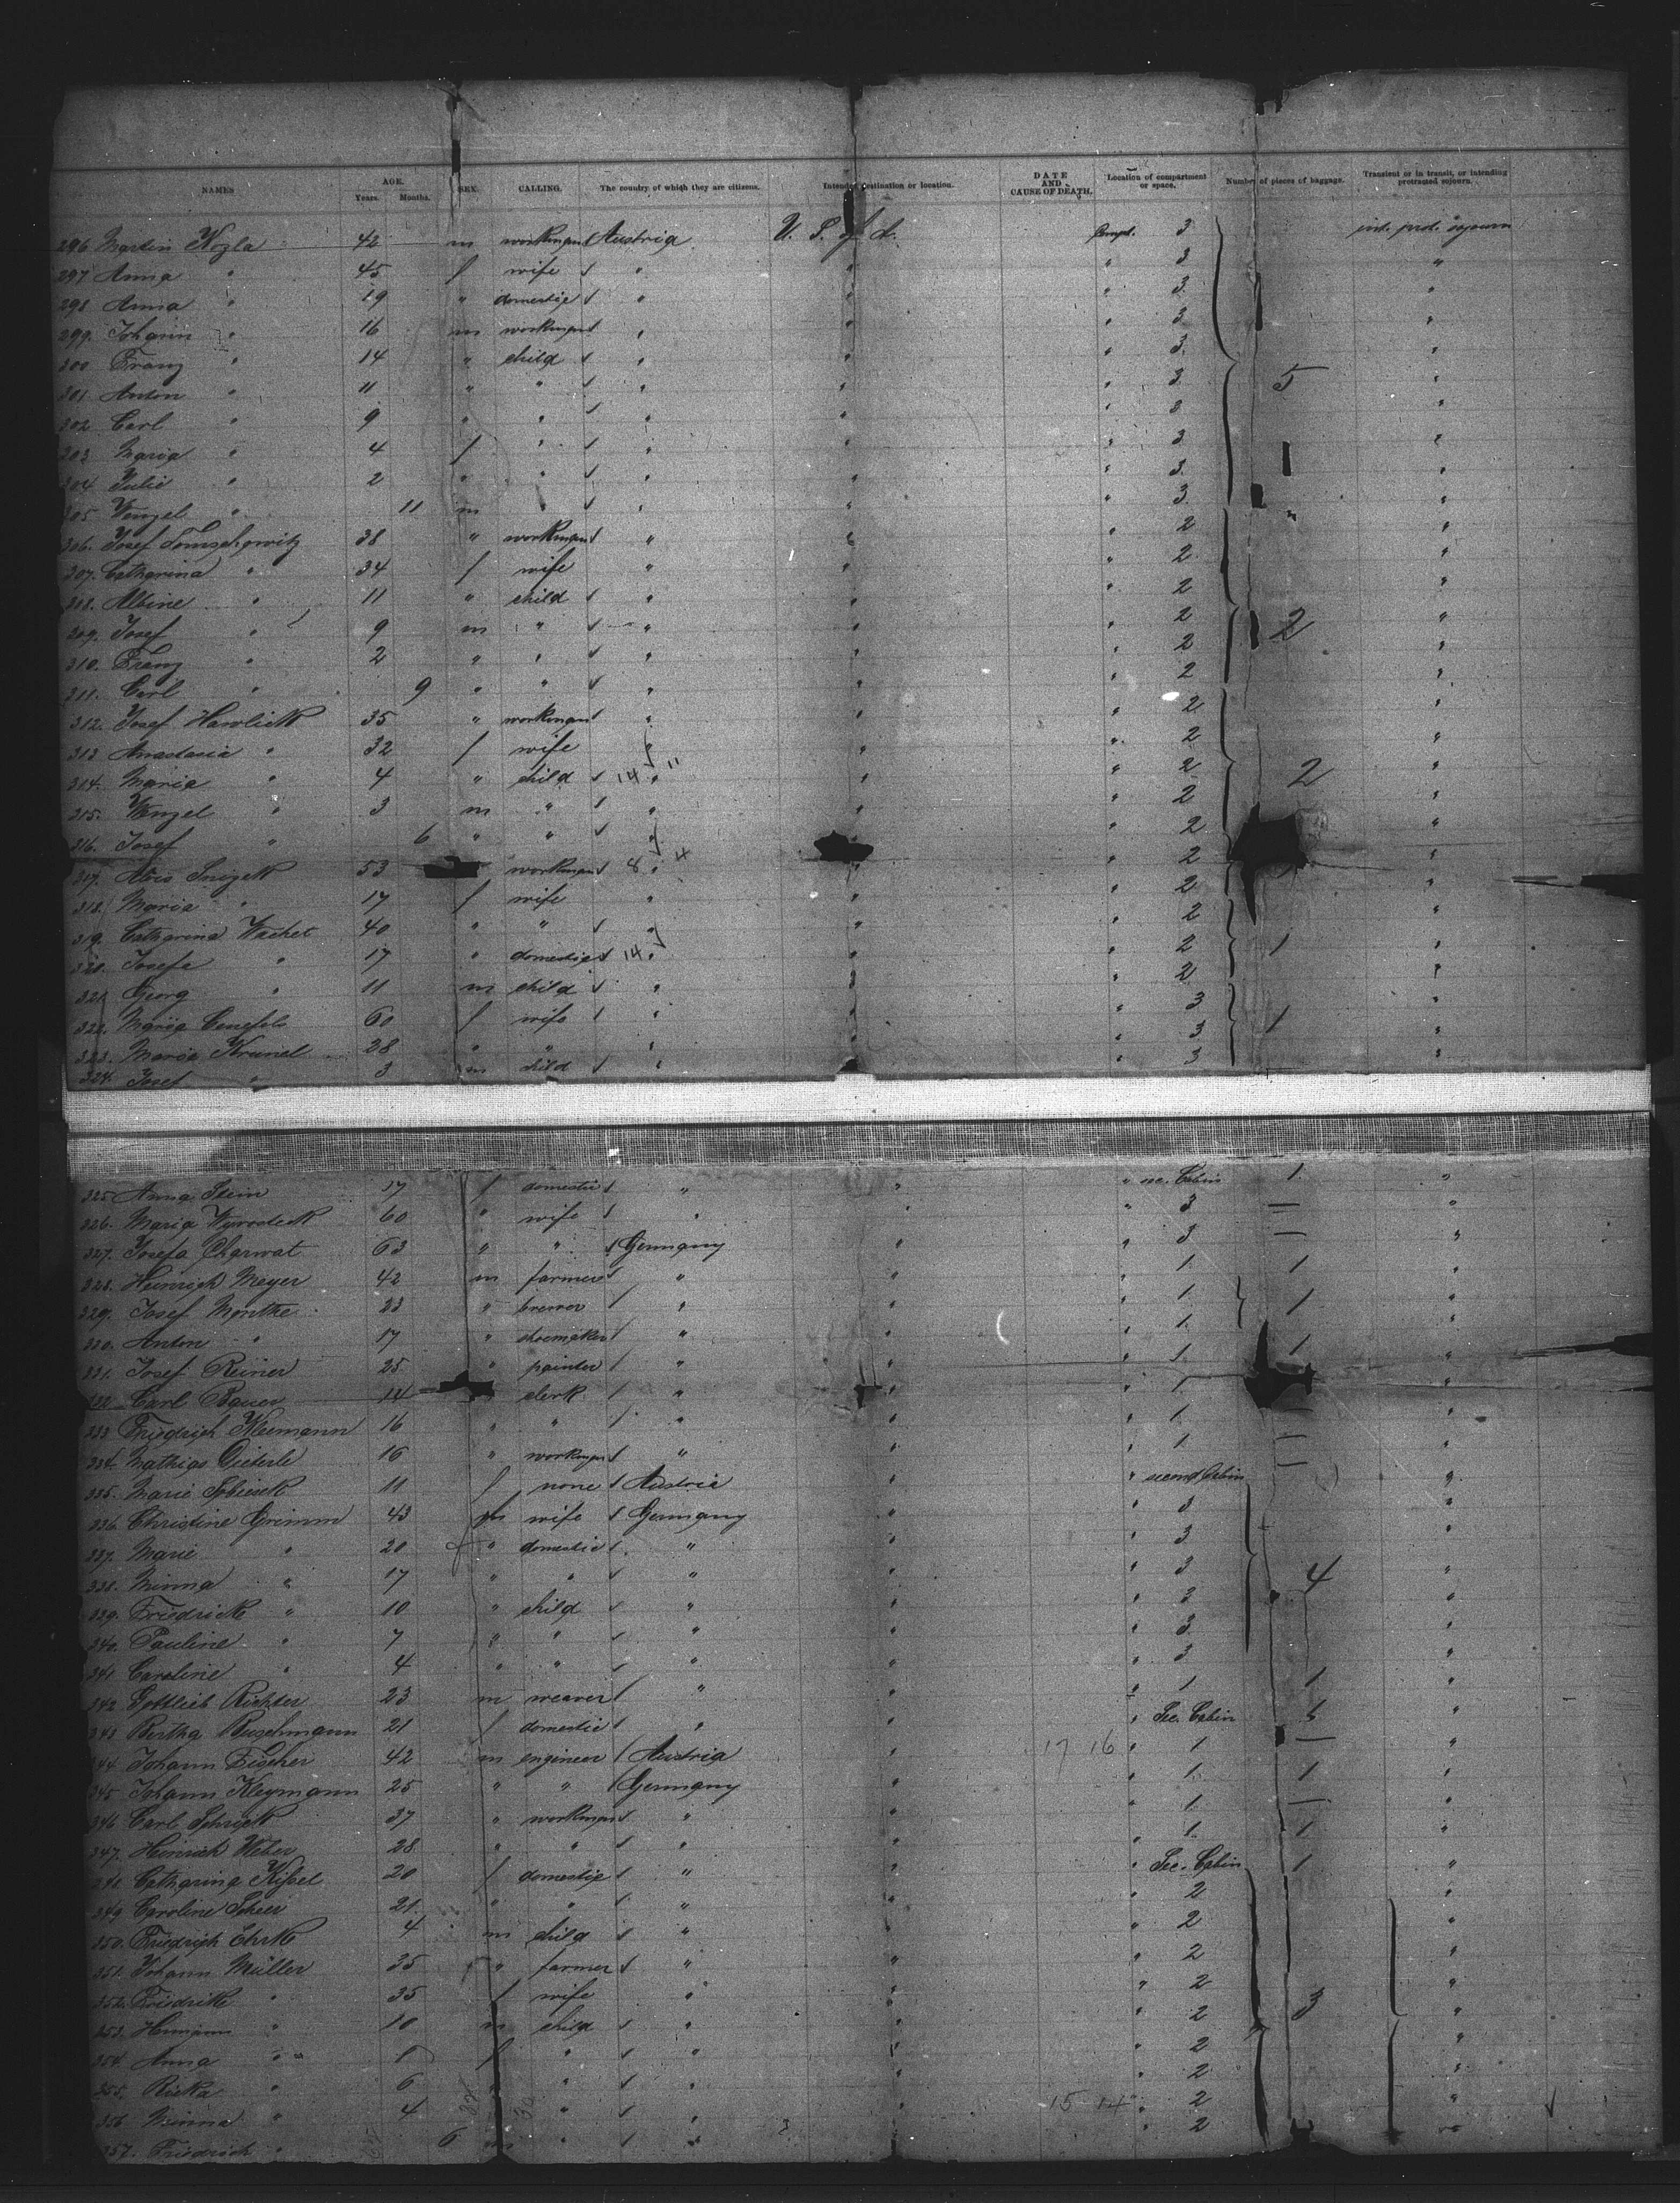 NAMES AGE. Years. Months. SEX. CALLING. The country of which they are citizens. Intended destination or location. DATE AND CAUSE OF DEATH. Location of compartment or space. Number of pieces of baggage. Transient or in transit, or intending protracted sojourn.
296 Martin Kozla 42 m workman Austria U. S. of A. Compt. 3 int. prot. sojourn
297 Anna " 45 f wife " " " 3 "
298 Anna " 19 " domestic " " " 3 "
299. Johann " 16 m workman " " " 3 "
300 Franz " 14 " child " " " 3. "
301. Anton " 11 " " " " " 3 5 "
302 Carl " 9 " " " " " 3 "
303 Maria " 4 f " " " " 3 "
304 Julie " 2 " " " " " 3 "
305 Wenzel " 11 m " " " 3 "
306. Josef Tomschowitz 38 " workman " " " 2 "
307. Catharina " 34 f wife " " " 2 "
308. Albine " 11 " child " " " 2 "
309. Josef " 9 m " " " " 2 2 "
310. Franz " 2 " " " " " 2 "
311. Carl " 9 " " " " " 2 "
312. Josef Hawlick 35 " workman " " " 2 "
313 Anastasia " 32 f wife " " " 2 "
314. Maria " 4 " child 14 " 11 " " 2 2 "
315. Wenzel " 3 m " " " " 2 "
316. Josef " 6 " " " " " 2 "
317. Alois 53 workman 8 " 4 " 2 "
318. Maria " 17 f wife " " " 2 "
319. Catharina Wachet 40 " " " " " 2 "
320. Josefa " 17 " domestic 14 " " " 2 1 "
321 Georg " 11 m child " " " 2 "
322. Maria 60 f wife " " 3 1 "
323. Maria 28 " " " " 3 "
324. Josef " 3 m child " " 3 "
325 Anna Stein 17 f domestic " " " sec. Cabin 1. "
326. Maria 60 " wife " " " 3 — "
327. Josefa Charwat 63 " " Germany " " 3 — "
328. Heinrich Meyer 42 m farmer " " " 1 1 "
329. Josef Monthe 23 " brewer " " " 1 1 "
330. Anton " 17 " shoemaker " " " 1 "
331. Josef Reiner 25 " painter " " " 1 1 "
332 Carl Bauer 14 clerk " " " 1 "
333 Friedrich Kleemann 16 " " " " " 1 — "
334. Mathias Dieterle 16 " workman " " " 1 — "
335. Marie 11 f none Austria " " second Cabin — "
336. Christine Grimm 43 wife Germany " " 3 "
337. Marie " 20 f " domestic " " " 3 "
338. Minna " 17 " " " " " 3 4 "
339. Friedricke " 10 " child " " " 3 "
340. Pauline " 7 " " " " " 3 "
341 Caroline " 4 " " " " " 3 "
342 Gottlieb Richter 23 m weaver " " " 1 1 "
343 Bertha Buschmann 21 f domestic " " " Sec. Cabin "
344 Johann Fischer 42 m engineer Austria " 17 16 " 1 — "
345 Johann Kleymann 25 " " Germany " " 1 1 "
346 Carl 37 " workman " " " 1 — "
347. Heinrich Weber 28 " " " " " 1 1 "
348 Catharina Kissel 20 f domestic " " " Sec. Cabin 1 "
349 Caroline 21 " " " " " 2 "
350. Friedrich 4 m child " " " 2 "
351. Johann Müller 35 " farmer " " " 2 "
352. Friedrike " 35 f wife " " " 2 "
353. Hermann " 10 m child " " " 2 3 "
354. Anna " f " " " " 2 "
355. Ricka " 6 " " " " " 2 "
356 Minna " 4 " " " 15 14 " 2 "
357. Friedrich " 6 m " " " 2